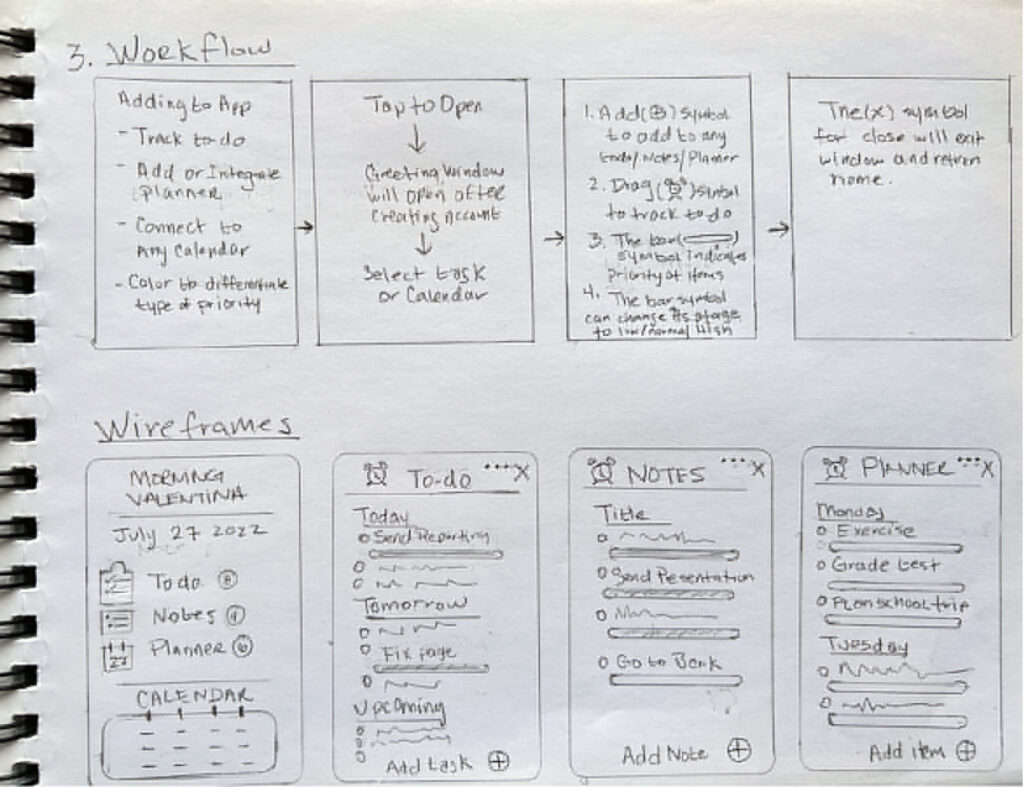 3. Workflow
Adding to App
- Track to do
- Add or Integrate
Planner
- Connect to
Any Calendar
- Color to differentiate
type of priority
Tap to Open
Greeting Window
will open after
Creating Account
Select task
or Calendar
1. Add (+) symbol
to add to any
todo/Notes/Planner
2. Drag ( ) symbol
to track to do
3. The bar ( )
symbol Indicates
Priority of items
4. The bar symbol
can change its stage
to low/normal High
The (x) symbol
for close will exit
window and retren
home.
Wireframes
MORNING
VALENTINA
July 27 2022
To do 8
Notes
Planner 6
27
CALENDAR
To-do ... X
Today
Send Reporting
Tomorrow
Fix page
Upcoming
Add task +
NOTES ... X
Title
Send Presentation
Go to Bank
Add Note +
PLANNER ... X
Monday
Exercise
Grade test
Plan school trip
Tuesday
Add item +